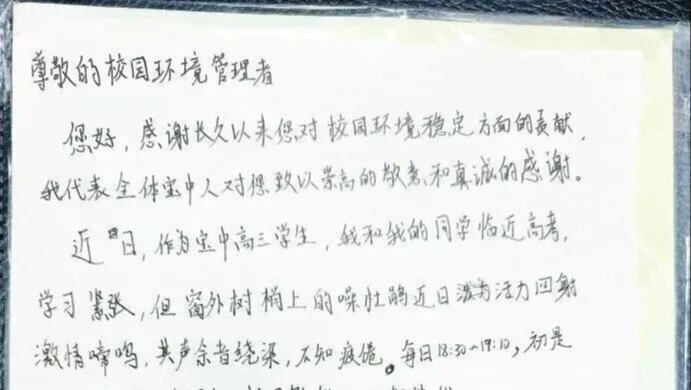 尊敬的校园环境管理者
您好，感谢长久以来您对校园环境稳定方面的贡献，
我代表全体宝中人对您致以崇高的敬意和真诚的感谢。
近日，作为宝中高三学生，我和我的同学临近高考，
学习紧张，但窗外树梢上的噪杜鹃近日活力四射
激情啼鸣，其声余音绕梁，不知疲倦。每日18:30~19:10，初是